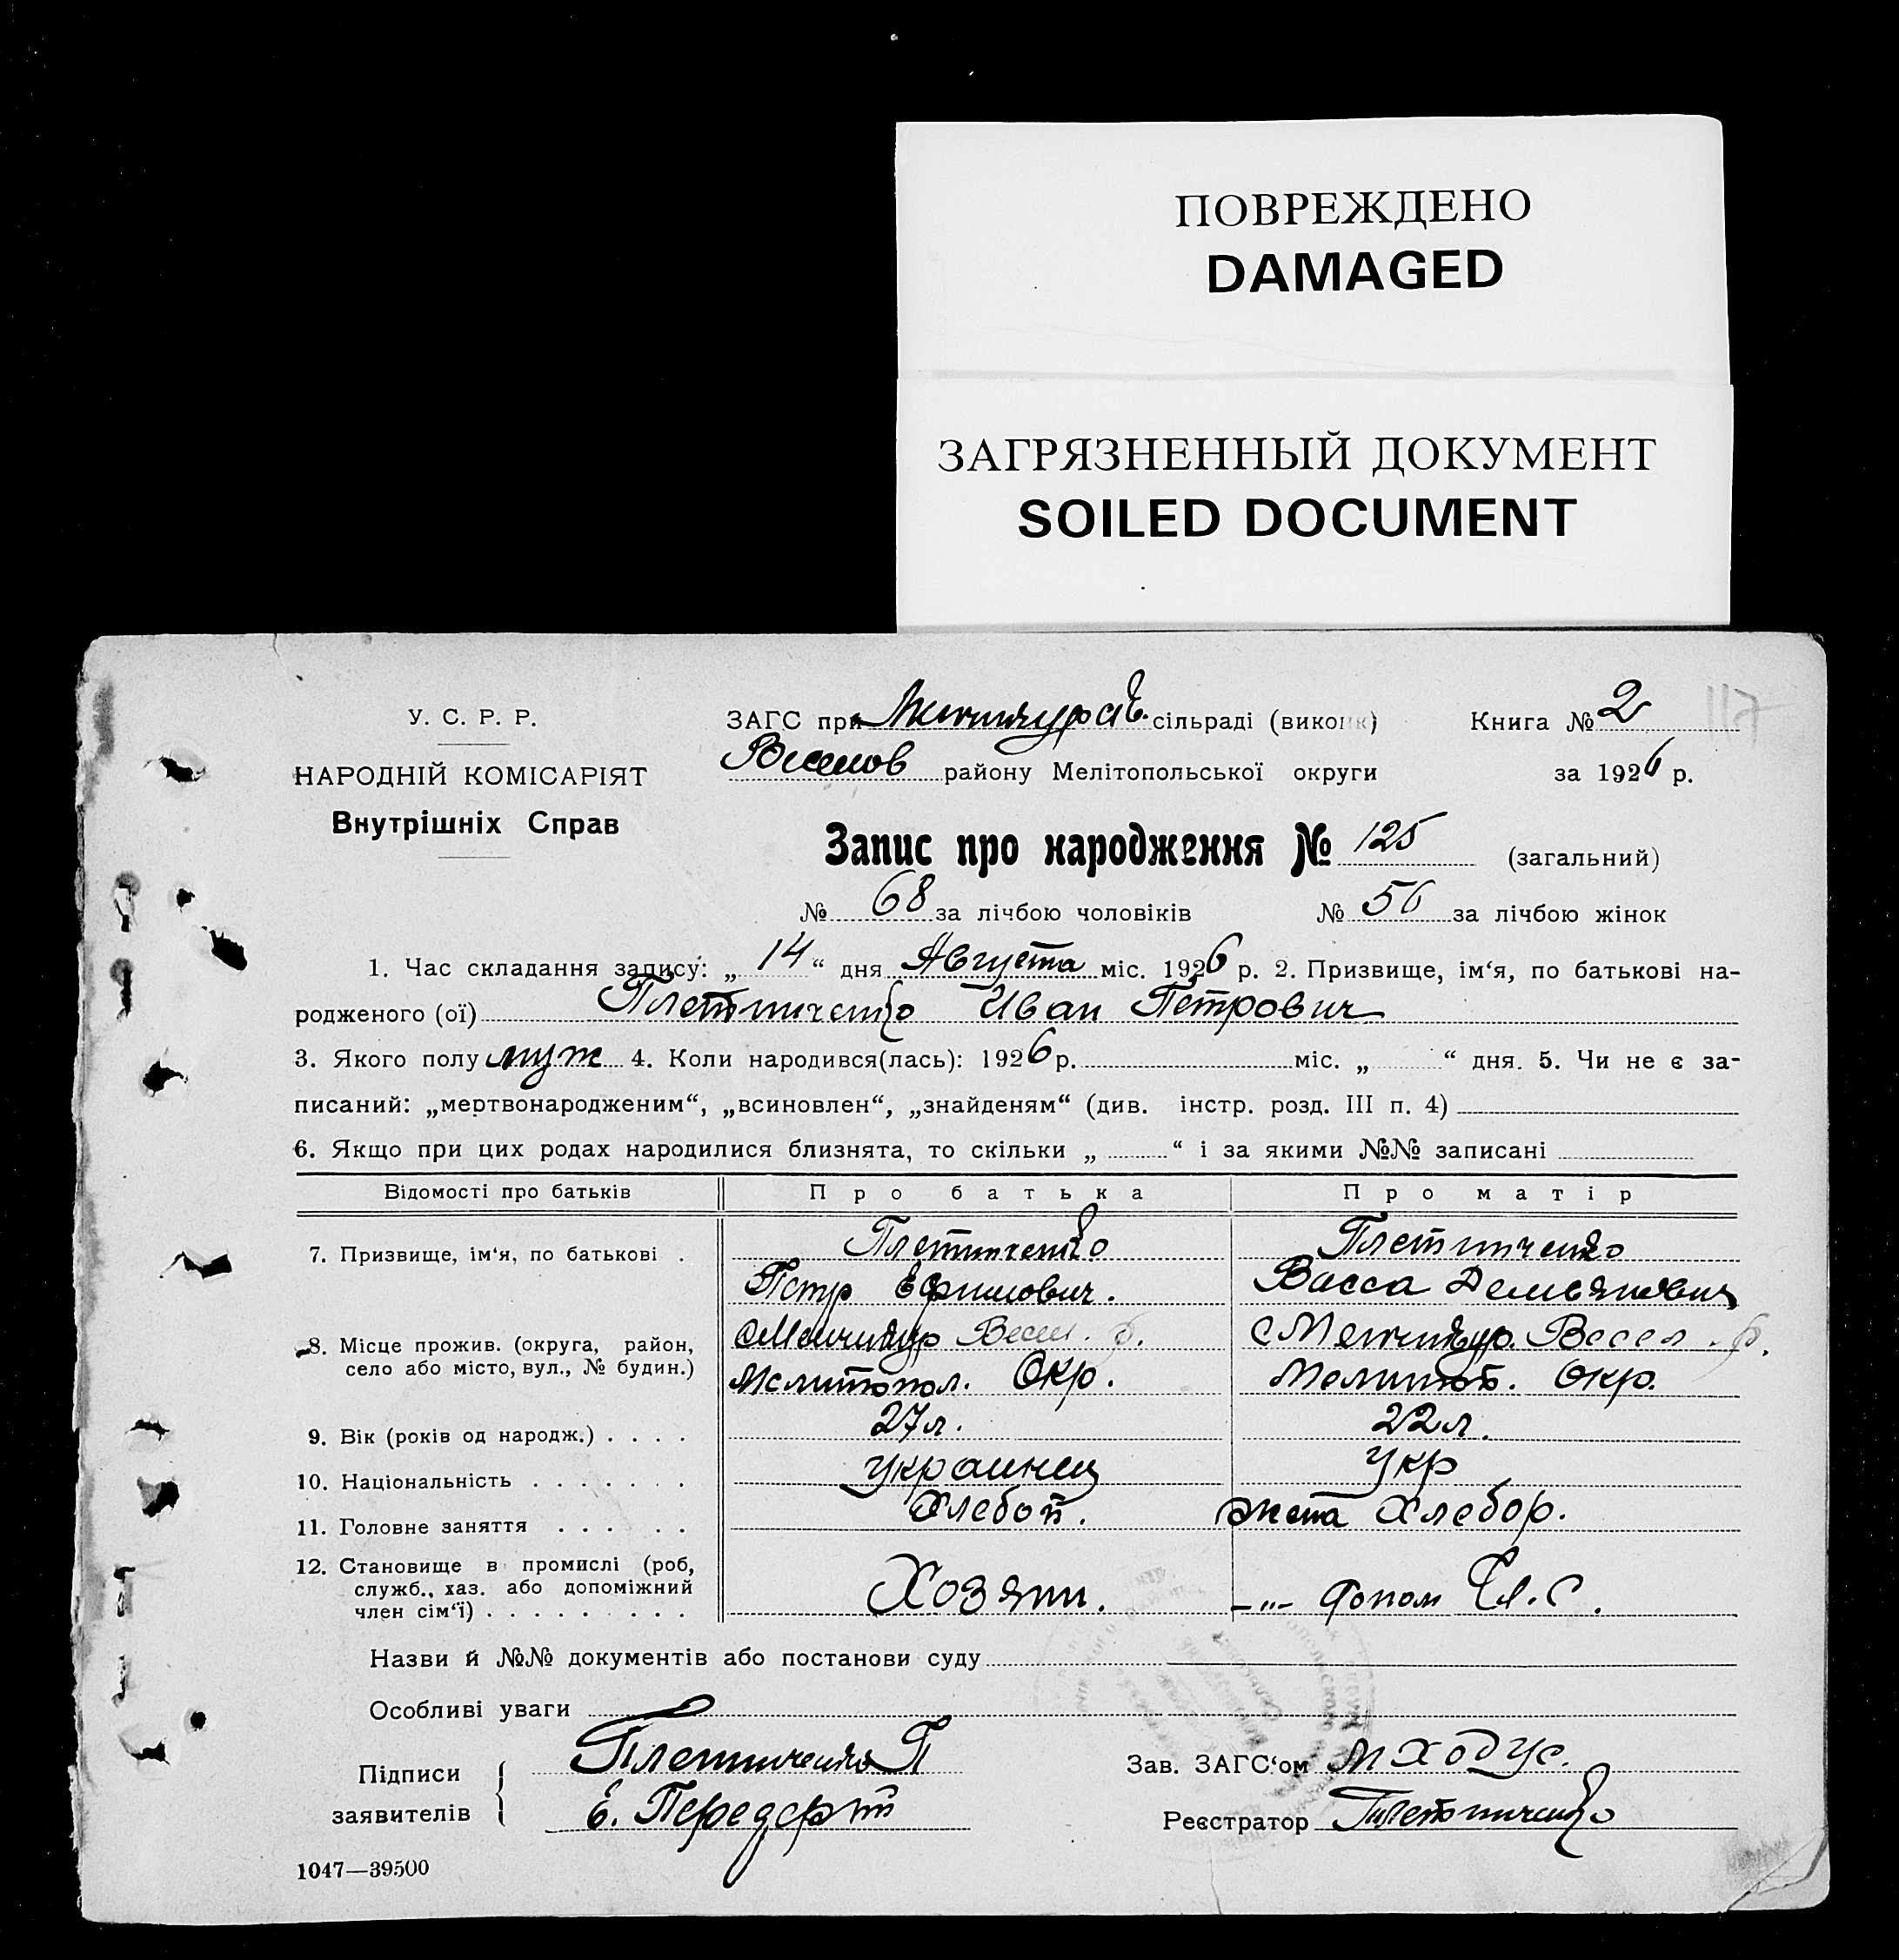 ПОВРЕЖДЕНО
DAMAGED
ЗАГРЯЗНЕННЫЙ ДОКУМЕНТ
SOILED DOCUMENT
У. С. Р. Р.
НАРОДНІЙ КОМІСАРІЯТ
Внутрішніх Справ
ЗАГС при сільраді (виконк) Книга № 2 117
Веселов району Мелітопольської округи за 1926 р.
Запис про народження № 125 (загальний)
№ 68 за лічбою чоловіків № 56 за лічбою жінок
1. Час складання запису: „ 14 “ дня Августа міс. 1926 р. 2. Призвище, ім‘я, по батькові на-
родженого (ої) Плетниченко Иван Петрович
3. Якого полу муж 4. Коли народився(лась): 1926 р. міс. „ “ дня. 5. Чи не є за-
писаний: „мертвонародженим“, „всиновлен“, „знайденям“ (див. інстр. розд. III п. 4)
6. Якщо при цих родах народилися близнята, то скільки „ “ і за якими №№ записані
Відомості про батьків Про батька Про матір
7. Призвище, ім‘я, по батькові . Плетниченко Плетниченко
Петр Ефимович. Васса Демьянович
8. Місце прожив. (округа, район, Весел. р. Весел. р.
село або місто, вул., № будин.) Мелитопол. Окр. Мелитоп. Окр.
9. Вік (років од народж.) . . . . 27 л. 22 л.
10. Національність . . . . . . . украинец Укр
11. Головне заняття . . . . . Хлебоп. жена Хлебор.
12. Становище в промислі (роб,
служб., хаз. або допоміжний
член сім‘ї) . . . . . . . . . Хозяин. –„– допом Чл. С.
Назви й №№ документів або постанови суду
Особливі уваги
Підписи Плетниченко П Зав. ЗАГС‘ом М Ходус.
заявителів Е. Передерт Реєстратор Плетниченко
1047—39500